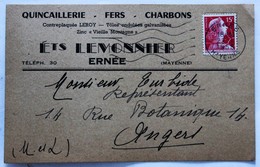 QUINCAILLERIE - FERS - CHARBONS
Contreplaqués LEROY — Tôles ondulées galvanisées
Zinc « Vieille Montagne »
Éts LEMONNIER
TÉLÉPH. 30
ERNÉE
(MAYENNE)
15
Monsieur
Représentant
14 Rue Botanique 14
(M & L)
Angers